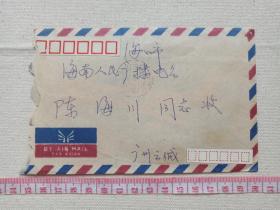 海口市
海南人民广播电台
陈海川同志收
BY AIR MAIL
PAR AVION
广州云城